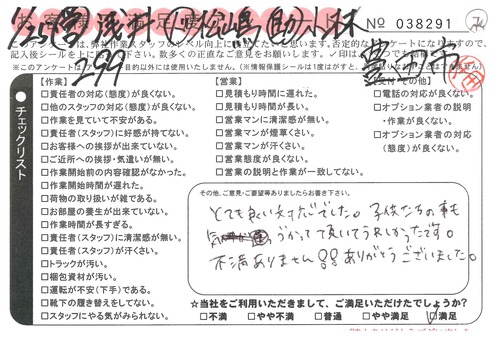 1/25 営 浅井 作 松嶋 助 小林
No 038291
299
豊田市
このアンケートは、弊社作業スタッフのレベル向上に
否定的なアンケートになりますので、
記入後シールを上に
数多くの正直なご意見をお願い致します。
チェックリスト
【作業】
□責任者の対応(態度)が良くない。
□他のスタッフの対応(態度)が良くない。
□作業を見ていて不安がある。
□責任者(スタッフ)に好感が持てない。
□お客様への挨拶が出来ていない。
□ご近所への挨拶・気遣いが無い。
□作業開始前の内容確認がなかった。
□作業開始時間が遅れた。
□荷物の取り扱いが雑である。
□お部屋の養生が出来ていない。
□作業時間が長すぎる。
□責任者(スタッフ)に清潔感が無い。
□責任者(スタッフ)が汗くさい。
□トラックが汚い。
□梱包資材が汚い。
□運転が不安(下手)である。
□靴下の履き替えをしてない。
□スタッフにやる気がみられない。
【営業】
□見積もり時間に遅れた。
□見積もり時間が長い。
□営業マンに清潔感が無い。
□営業マンが煙草くさい。
□営業マンが汗くさい。
□営業態度が良くない。
□営業の説明と作業が一致してない。
【受付・その他】
□電話の対応が良くない。
□オプション業者の説明
・作業が良くない。
□オプション業者の対応
(態度)が良くない。
その他、ご意見・ご要望等ありましたらお書き下さい。
とても良い対応でした。子供たちの事も
気づかって頂いてうれしかったです。
不満ありません!!ありがとうございました。
☆当社をご利用いただきまして、ご満足いただけたでしょうか?
□不満 □やや不満 □普通 □やや満足 ☑満足